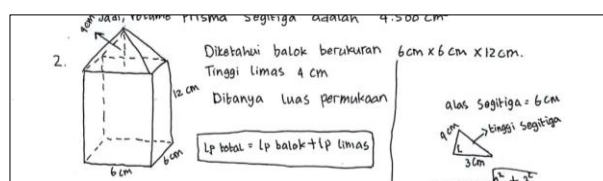 Jadi, volume prisma segitiga adalah 4.500 cm
2.
4cm
12 cm
6cm
6cm
Diketahui balok berukuran 6cm x 6 cm x 12cm.
Tinggi limas 4 cm
Ditanya luas permukaan
Lp total = Lp balok + Lp limas
alas segitiga = 6cm
4cm
tinggi segitiga
3cm